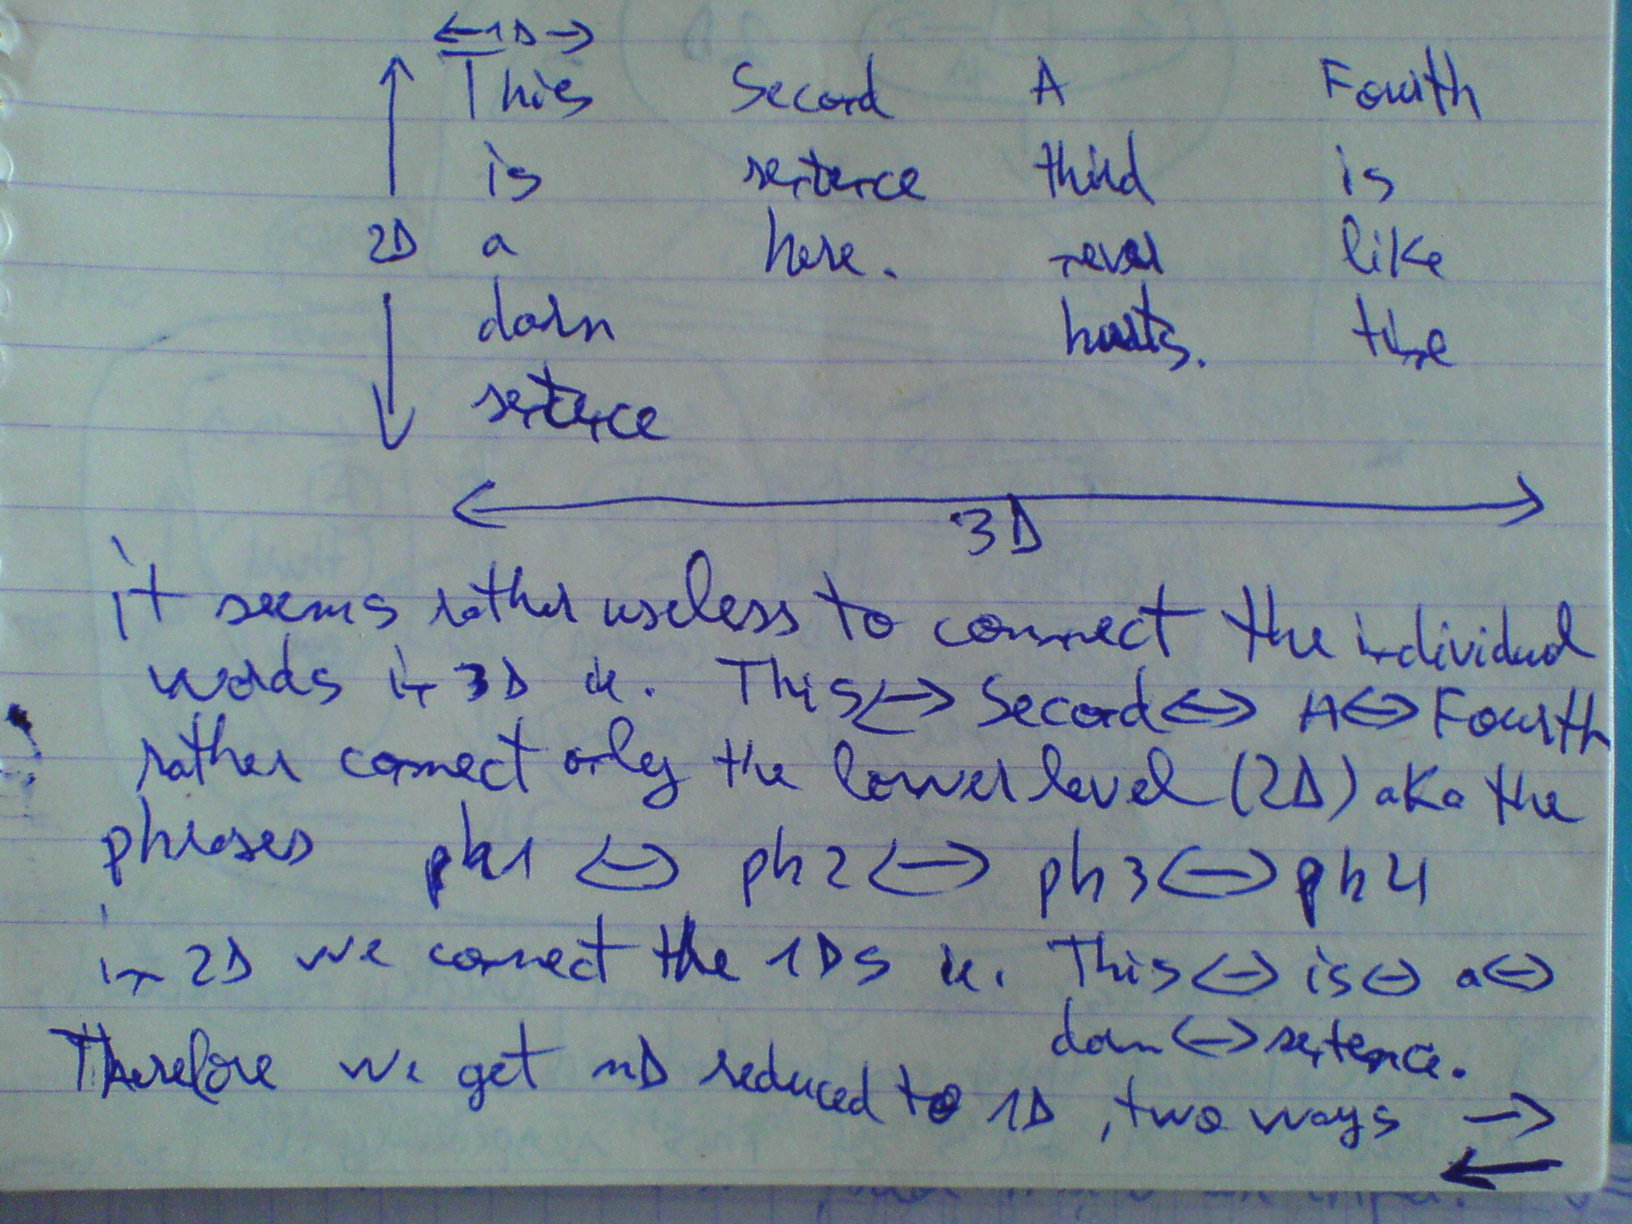 ←1D→
This Second A Fourth
is sentence third is
2D a here. never like
darn hurts. the
sentence
3D
it seems rather useless to connect the individual
words in 3D ie. This ↔ Second ↔ A ↔ Fourth
rather connect only the lower level (2D) aka the
phrases ph1 ↔ ph2 ↔ ph3 ↔ ph4
in 2D we connect the 1Ds ie. This ↔ is ↔ a ↔
darn ↔ sentence.
Therefore we get nD reduced to 1D, two ways →
←